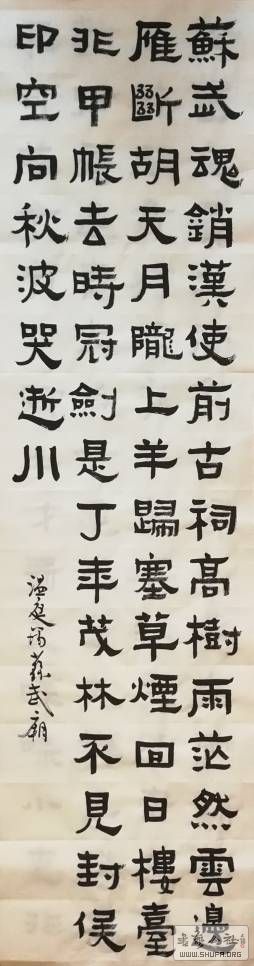 蘇武魂銷漢使前古祠高樹雨茫然雲邊
雁斷胡天月隴上羊歸塞草煙回日樓臺
非甲帳去時冠劍是丁年茂林不見封侯
印空向秋波哭逝川
溫庭筠蘇武廟
WWW.SHUFA.ORG